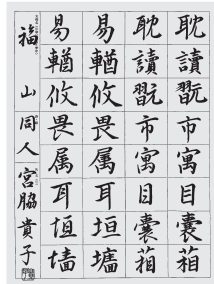 耽讀翫市寓目囊箱
耽讀翫市寓目囊箱
易輶攸畏属耳垣墻
易輶攸畏属耳垣墙
福山同人宮脇貴子